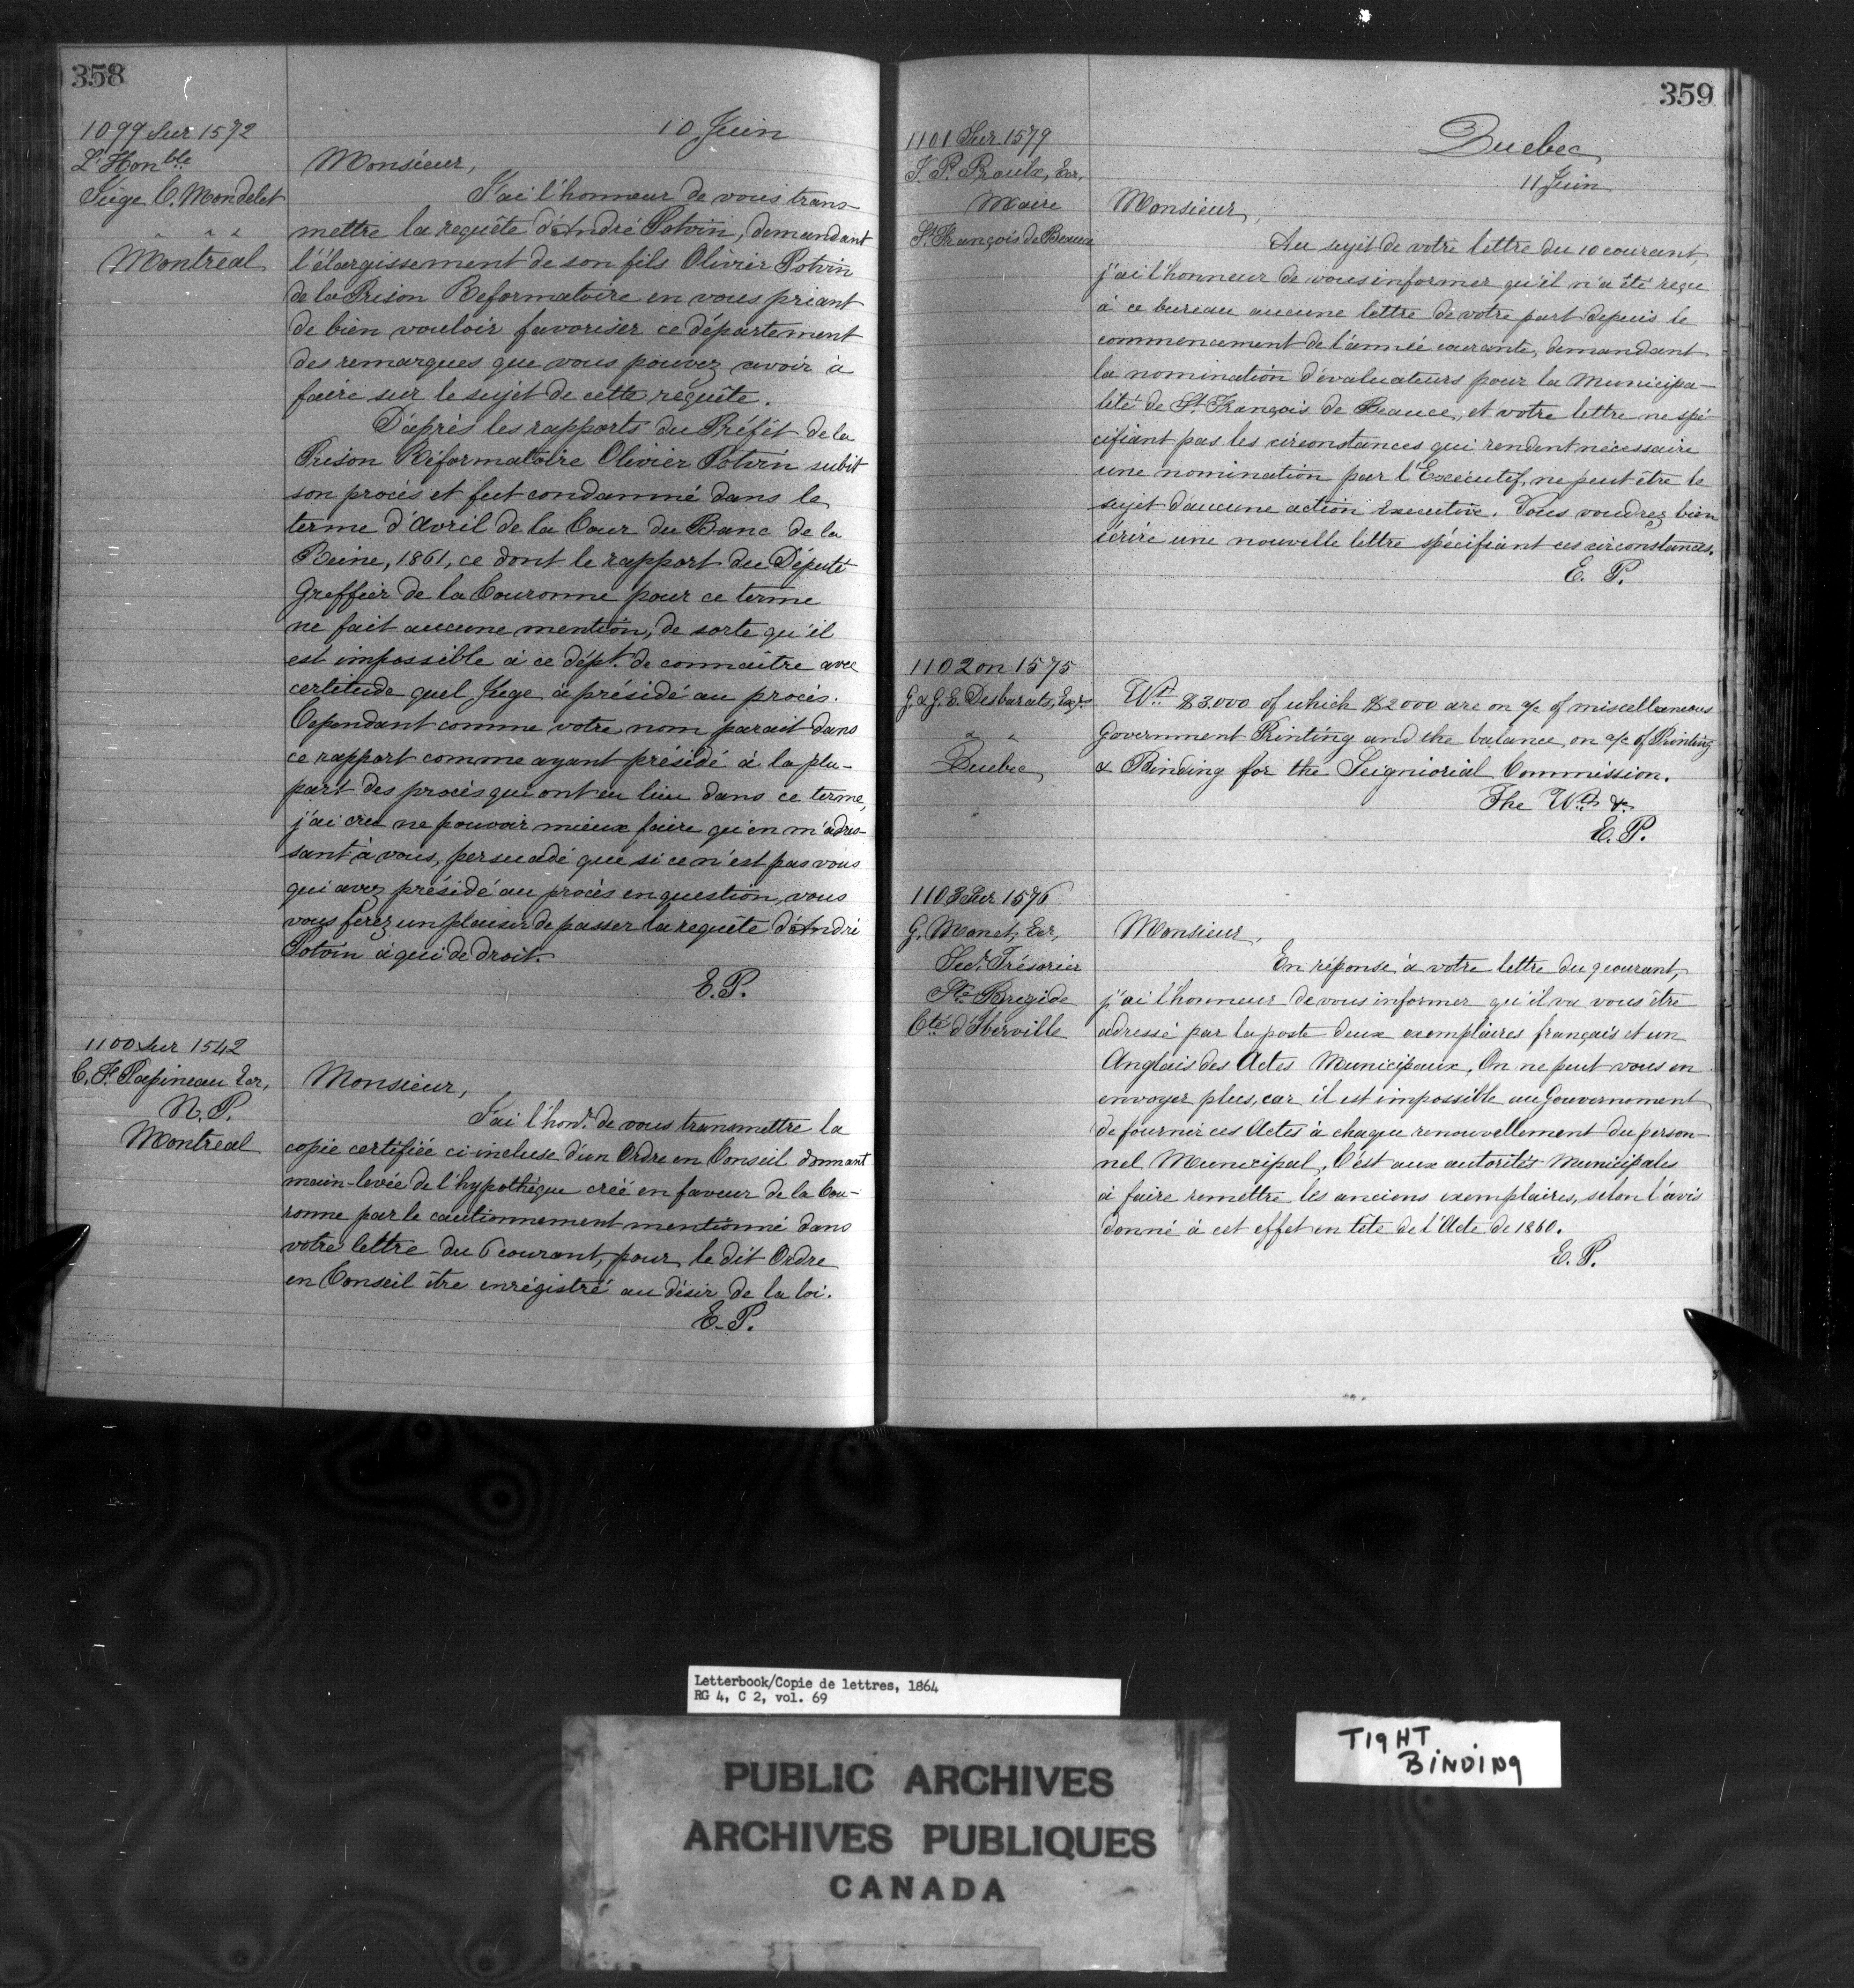 358
10 Juin
1099 Sur 1572
L'Honble
Juge C. Mondelet
" " "
Montreal
Monsieur,
J'ai l'honneur de vous trans-
mettre la requête d'André Potvin, demandant
l'élargissement de son fils Olivier Potvin
de la Prison Reformatoire en vous priant
de bien vouloir favoriser ce département
des remarques que vous pouvez avoir à
faire sur le sujet de cette requête.
D'après les rapports du Préfêt de la
Prison Réformatoire Olivier Potvin subit
son procès et fut condamné dans le
terme d'Avril de la Cour du Banc de la
Reine, 1861, ce dont le rapport du Député
Greffier de la Couronne pour ce terme
ne fait aucune mention, de sorte qu'il
est impossible à ce dépt. de connaître avec
certitude quel Juge a présidé au procès.
Cependant comme votre nom parait dans
ce rapport comme ayant présidé à la plu-
part des procès qui ont eu lieu dans ce terme,
j'ai cru ne pouvoir mieux faire qu'en m'adres-
sant à vous, persuadé que si ce n'est pas vous
qui avez présidé au procès en question, vous
vous ferez un plaisir de passer la requête d'André
Potvin à qui de droit.
E.P.
1100 Sur 1542
C. F. Papineau Ecr,
N.P.
Montreal
Monsieur,
J'ai l'honr. de vous transmettre la
copie certifiée ci-incluse d'un Ordre en Conseil donnant
main-levée de l'hypothèque créé en faveur de la Cou-
ronne par le cautionnement mentionné dans
votre lettre du 6 courant, pour le dit Ordre
en Conseil être enrégistré au désir de la loi.
E.P.
359
Quebec
11 Juin
1101 Sur 1579
J. P. Proulx, Ecr,
Maire
St. François de Beauce
Monsieur,
Au sujet de votre lettre du 10 courant,
j'ai l'honneur de vous informer qu'il n'a été reçu
à ce bureau aucune lettre de votre part depuis le
commencement de l'année courante, demandant
la nomination d'évaluateurs pour la Municipa-
lité de St. François de Beauce, et votre lettre ne spé
cifiant pas les circonstances qui rendent nécessaire
une nomination par l'Exécutif, ne peut être le
sujet d'aucune action Executive. Vous voudrez bien
écrire une nouvelle lettre spécifiant ces circonstances.
E. P.
1102 on 1575
G. & G. E. Desbarats, Esqr.
" "
Quebec
Wt. $3.000 of which $2000 are on a/c of miscellaneous
Government Printing and the balance on a/c of Printing
& Binding for the Seigniorial Commission.
The Wts. &c
E.P.
1103 Sur 1576
G. Monet, Ecr,
Secr. Trésorier
Ste. Brigide
Cté d'Iberville
Monsieur,
En réponse à votre lettre du 9 courant,
j'ai l'honneur de vous informer qu'il va vous être
adressé par la poste deux exemplaires français et un
Anglais des Actes Municipaux. On ne peut vous en
envoyer plus, car il est impossible au Gouvernement
de fournir ces Actes à chaque renouvellement du person-
nel Municipal. C'est aux autorités Municipales
à faire remettre les anciens exemplaires, selon l'avis
donné à cet effet en tête de l'Acte de 1860.
E.P.
Letterbook/Copie de lettres, 1864
RG 4, C 2, vol. 69
TIGHT
BINDING
PUBLIC ARCHIVES
ARCHIVES PUBLIQUES
CANADA